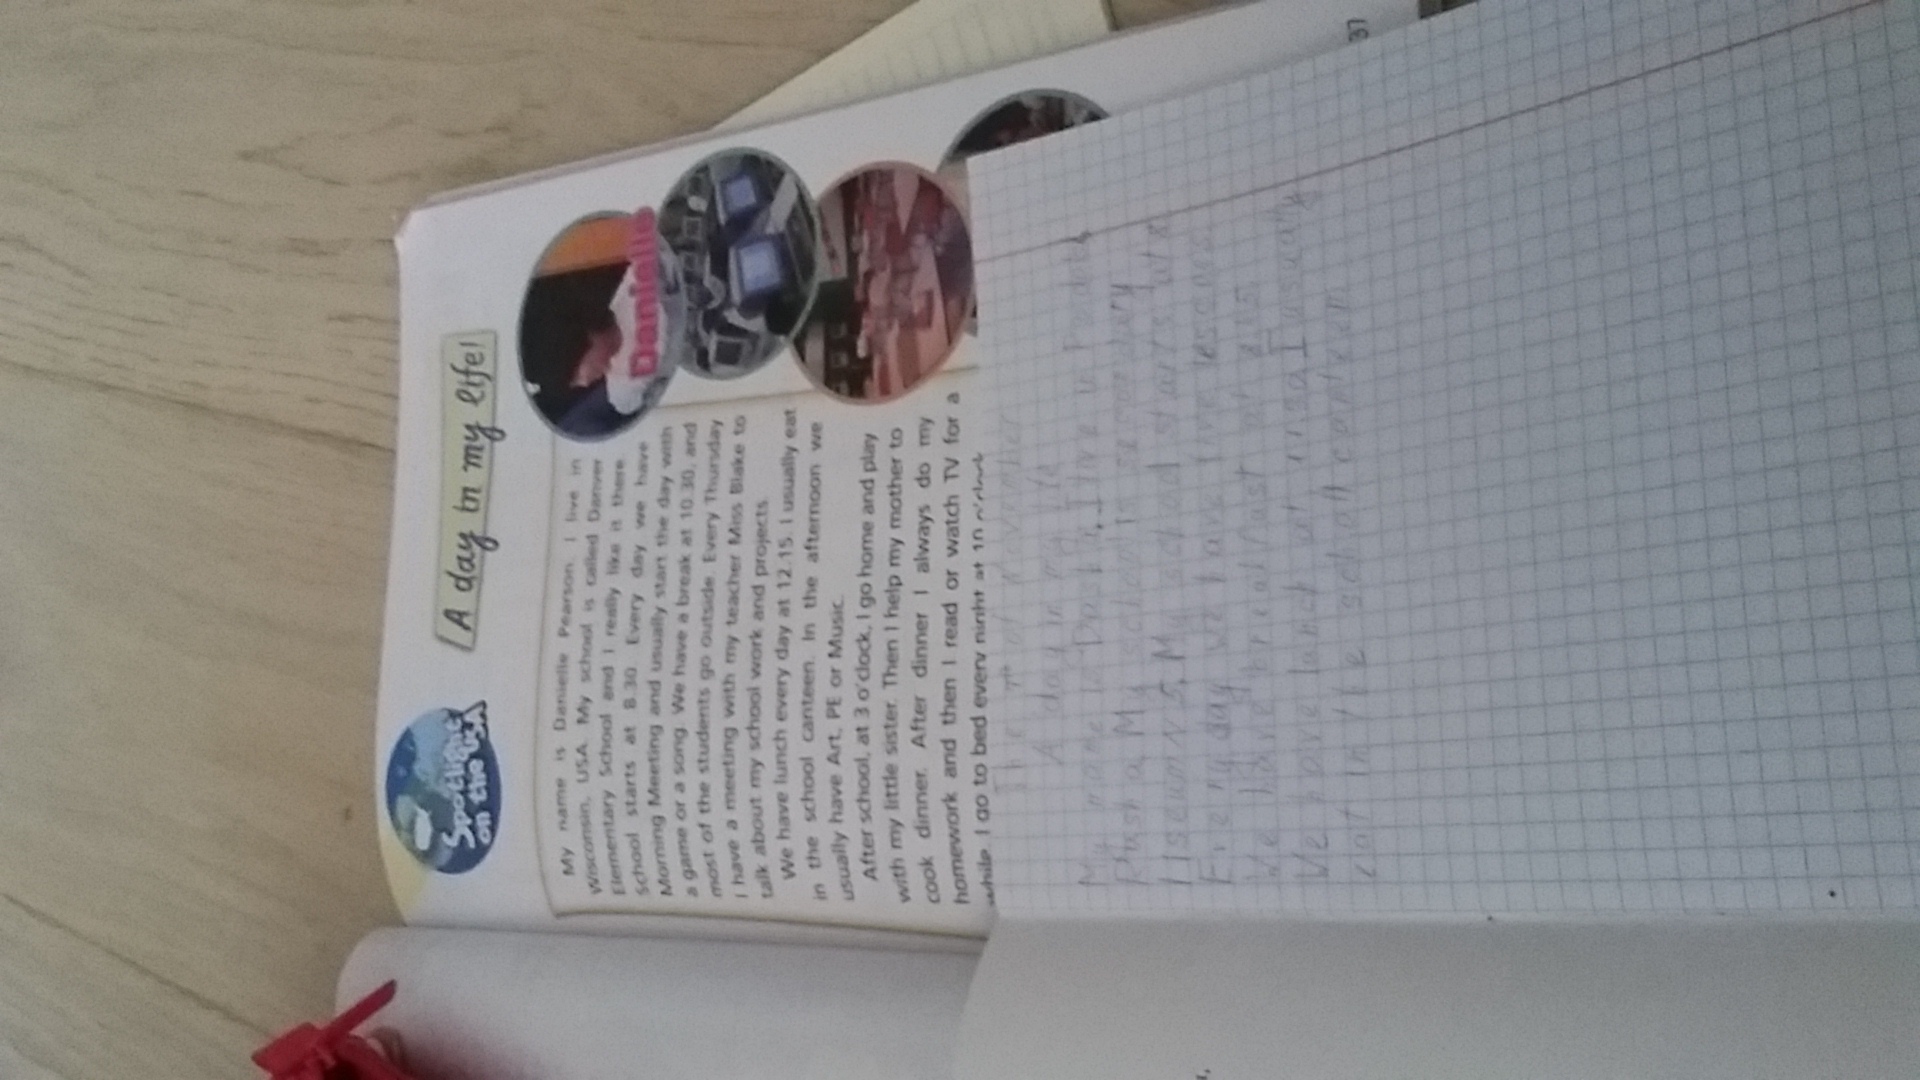 Spotlight
on the USA
A day in my life!
My name is Danielle Pearson. I live in
Wisconsin, USA. My school is called Danver
Elementary School and I really like it there.
School starts at 8.30. Every day we have
Morning Meeting and usually start the day with
a game or a song. We have a break at 10.30, and
most of the students go outside. Every Thursday
I have a meeting with my teacher Miss Blake to
talk about my school work and projects.
We have lunch every day at 12.15. I usually eat
in the school canteen. In the afternoon we
usually have Art, PE or Music.
After school, at 3 o'clock, I go home and play
with my little sister. Then I help my mother to
cook dinner. After dinner I always do my
homework and then I read or watch TV for a
while. I go to bed every night at 10 o'clock
Danielle
37
The 7th of November
A day in my life
My name is Dasha. I live in
Russia. My school is
My school starts at
Every day we have five lessons.
We have breakfast at
We have lunch at I usually
eat in the school canteen.